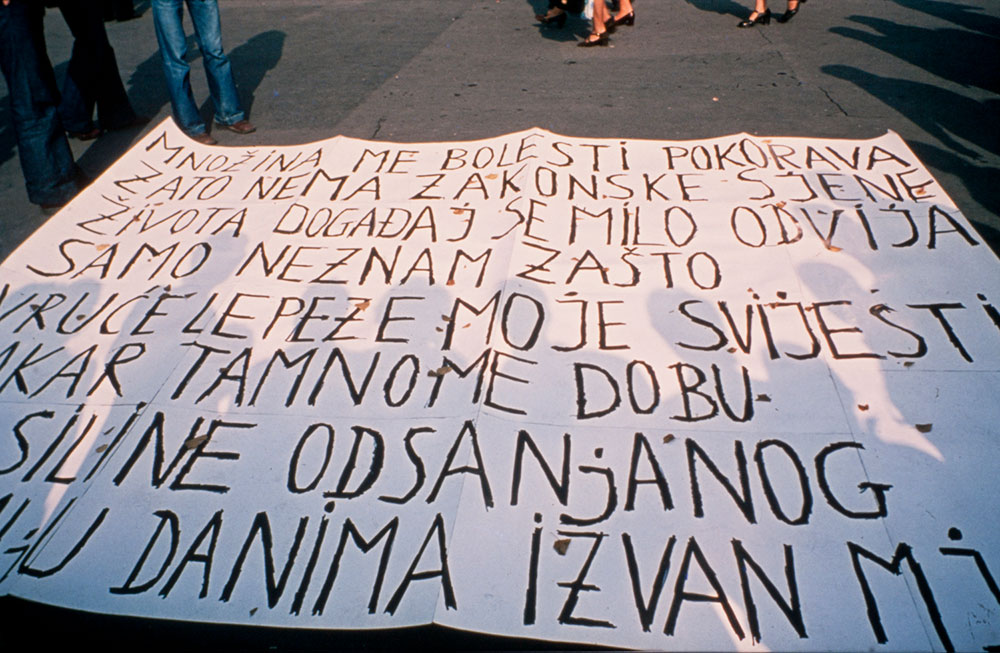 MNOŽINA ME BOLESTI POKORAVA
ZATO NEMA ZAKONSKE SJENE
ŽIVOTA DOGAĐAJ SE MILO ODVIJA
SAMO NEZNAM ZAŠTO
VRUĆE LEPEZE MOJE SVIJESTI
AKAR TAMNOME DOBU
SILINE ODSANjANOG
DANIMA iZVAN